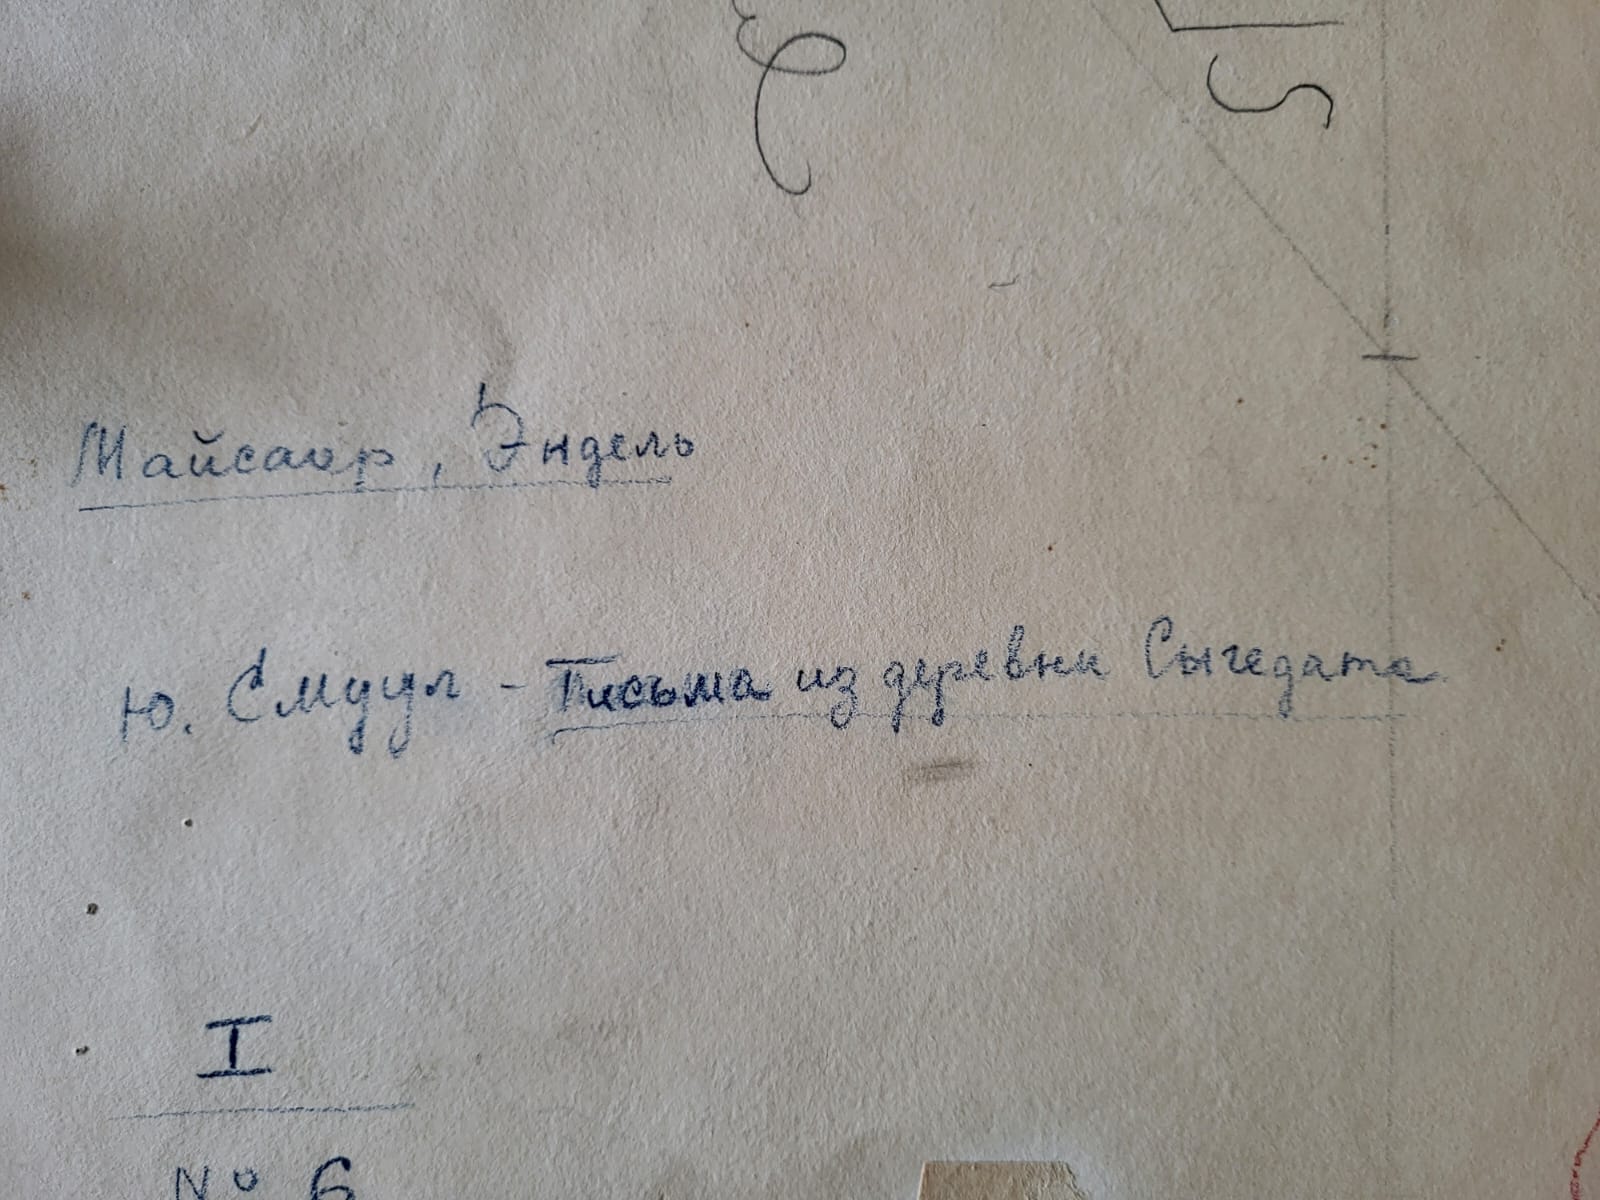 Майсаар, Эндель
Ю. Смуул - Письма из деревни Сыгедате
I
№ 6